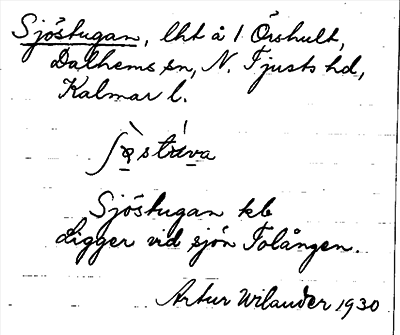 Sjöstugan, lht å 1 Örshult,
Dalhems sn, N. Tjusts hd,
Kalmar l.
ʃø̀stúva
Sjöstugan kb
Ligger vid sjön Tolången.
Artur Wilander 1930